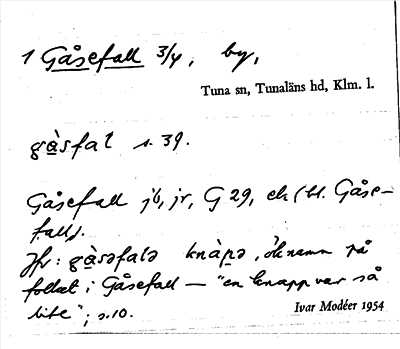 1 Gåsefall 3/4, by,
Tuna sn, Tunaläns hd, Klm. l.
gàsfal s. 39.
Gåsefall jb, jr, G 29, ek (bl. Gåse-
fall).
Jfr: gàsəfalə knàpə, öknamn på
folket i Gåsefall — "en knapp var så
lite"; s. 10.
Ivar Modéer 1954